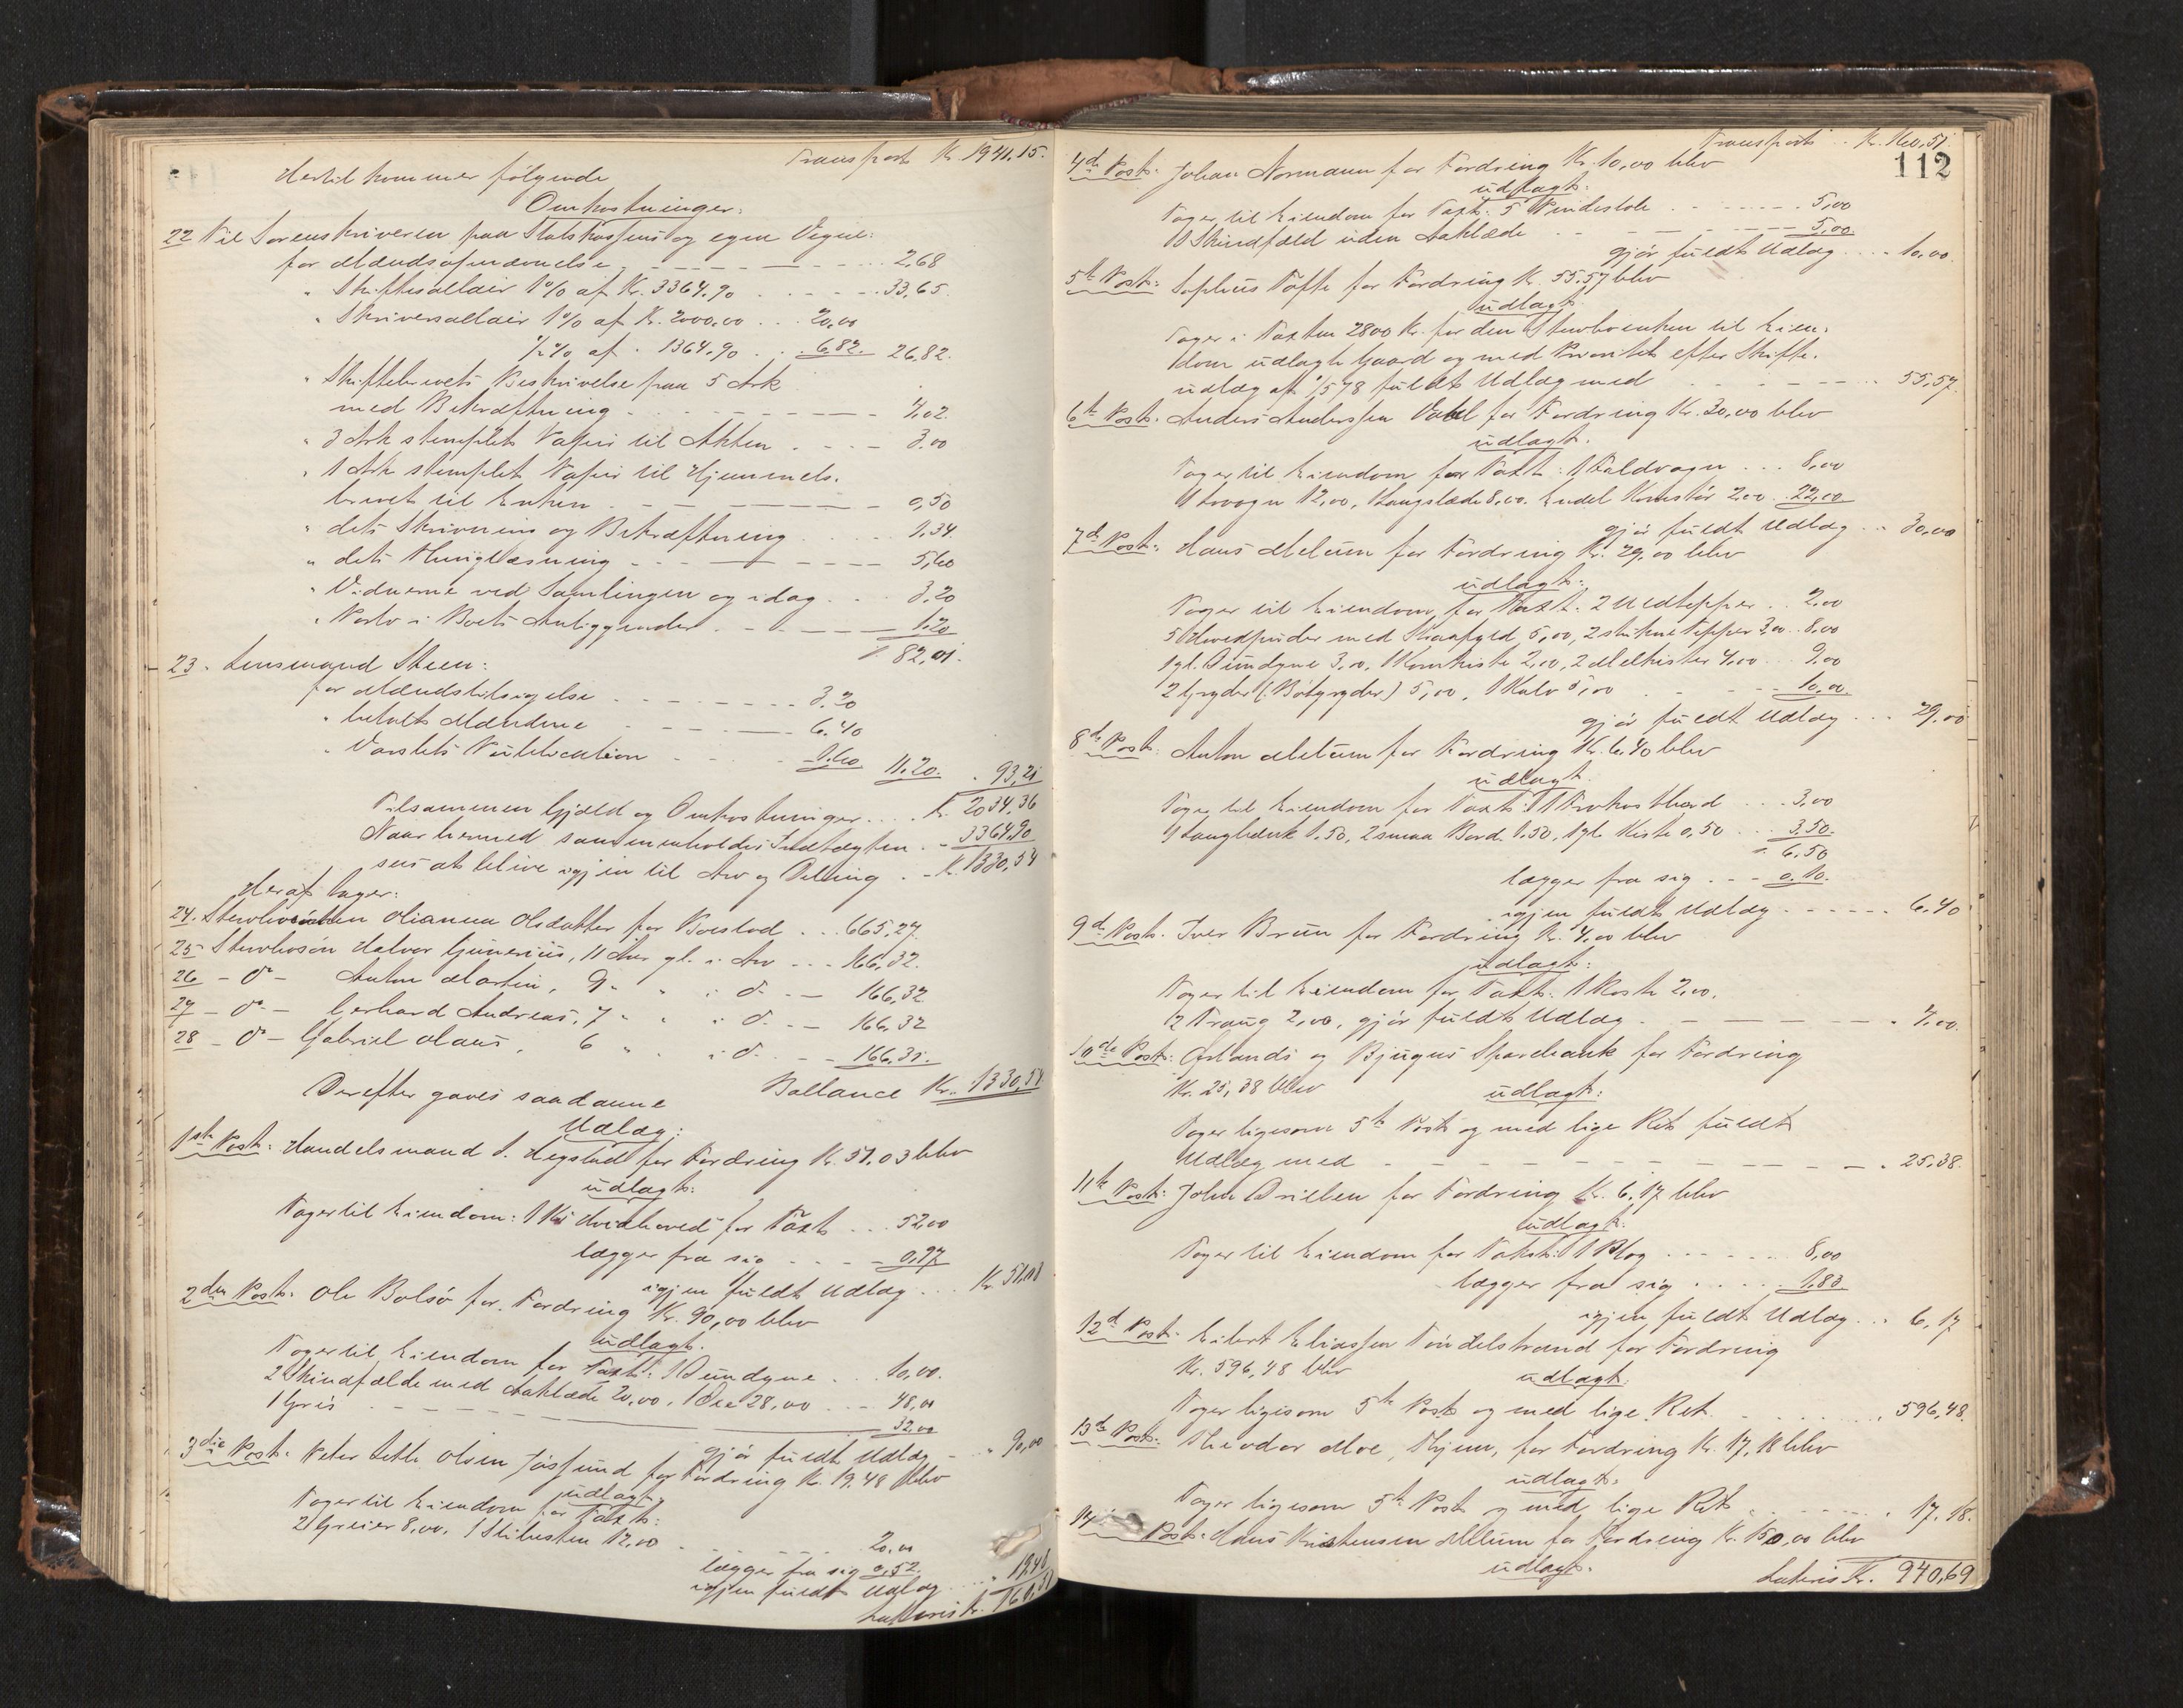 Transport Kr. 1941.15.
Hertil kommer følgende
Omkostninger:
22 Til Sorenskriveren paa Statskassens og egne Vegne:
for Mændsopnævnelse 2,68
" Skiftesallair 1% af Kr. 3364.90 33,65.
" Skriversallair 1% af Kr. 2000,00 20,00
½% af " 1364.90 6,82. 26,82.
" Skiftebrevets Beskrivelse paa 5 Ark
med Bekræftning 4,02.
" 3 Ark stemplet Papir til Akten 3.00
" 1 Ark stemplet Papir til Hjemmels-
brevet til Enken 0,50
" dets Skrivning og Bekræftning 1.34.
" dets Thinglæsning 5,60
" Vidnerne ved Samlingen og idag 3.20
" Porto i Boets Anliggender 1.20
82,01.
23. Lensmand Steen:
for Mændstilsigelse 3.20
" betalt Mændene 6.40
" Varslets Publication 1.60 11.20. " 93,21
Tilsammen Gjæld og Omkostninger Kr. 2034,36
Naar hermed sammenholdes Indtægten " 3364,90
sees at blive igjen til Arv og Deling Kr. 1330,54
Heraf tager:
24. Sterboenken Olianna Olsdatter for Boeslod 665,27.
25 Sterbosøn Halvor Gunerius, 11 Aar gl. i Arv 166,32.
26 - do - Anton Martin, 9 " " i do - 166,32
27 - do - Gerhard Andreas, 7 " " i do - 166,32
28 - do - Gabriel Claus, 6 " " i do - 166.31.
Ballance Kr. 1330,54
Derefter gaves saadanne
Udlæg:
1ste Post: Handelsmand S. Hegstad for Fordring Kr. 51,03 blev
udlagt:
Tager til Eiendom: 1 Ko Hvidhoved for Taxt 52,00
lægger fra sig 0,97
igjen fuldt Udlæg Kr. 51,03
2den Post: Ole Bolsø for Fordring Kr. 90,00 blev
udlagt.
Tager til Eiendom for Taxt: 1 Dundyne 10,00.
2 Skindfælde med Aaklæde 20,00, 1 Dee 28,00 48,00
1 Gris 32,00
gjør fuldt Udlæg " 90,00
3die Post: Peter Olsen for Fordring Kr. 19,48 blev
udlagt,
Tager til Eiendom for Taxt:
2 Greier 8,00, 1 12,00 20,00
lægger fra sig 0,52.
igjen fuldt Udlæg " 19,48
Lateris Kr. 160,51
Transport Kr. 160,51.
112
4de Post: Johan Normann for Fordring Kr. 10,00 blev
udlagt:
Tager til Eiendom for Taxt: 5 Pindestole 5,00
1 Skindfæld uden Aaklæde 5,00
gjør fuldt Udlæg 10,00.
5te Post: Sophus Tofte for Fordring Kr. 55.57 blev
udlagt.
Tager i Taxten 2800 Kr. for den Sterboenken til Eien-
dom udlagte Gaard og med Prioritet efter Skifte-
udlæg af fuldt Udlæg med 55,57.
6te Post. Anders Anderssen Vahl for Fordring Kr. 30,00 blev
udlagt.
Tager til Eiendom for Taxt: 1 8,00
1 12,00, 1 Langslæde 8,00. Endel 2,00 22,00
gjør fuldt Udlæg 30,00
7de Post: Hans Melum for Fordring Kr. 29,00 blev
udlagt:
Tager til Eiendom, for Taxt: 2 2,00
5 Hovedpuder med 5,00, 2 Tepper 3,00 8,00
1 gl. Dundyne 3,00, 1 Kornkiste 2,00, 2 Melkister 4,00 9,00
2 Gryder 5,00, 1 Kalv 5,00 10,00.
gjør fuldt Udlæg 29,00
8de Post: Anton Melum for Fordring Kr. 6,40 blev
udlagt.
Tager til Eiendom for Taxt: 1 3,00
1 Langbænk 1.50, 2 smaa Bord 1.50, 1 gl. Kiste 0,50 3,50.
6,50
lægger fra sig 0.10.
igjen fuldt Udlæg 6,40
9de Post. Iver Brun for Fordring Kr. 4,00 blev
udlagt:
Tager til Eiendom for Taxt: 1 2,00,
2 Traug 2,00, gjør fuldt Udlæg " 4,00.
10de Post: Ørlands og Bjugns Sparebank for Fordring
Kr. 25,38 blev udlagt:
Tager ligesom 5te Post og med lige Ret fuldt
Udlæg med " 25,38.
11te Post: John for Fordring Kr. 6,17 blev
udlagt:
Tager til Eiendom for Takst: 1 Plog 8,00
lægger fra sig 1,83.
igjen fuldt Udlæg 6,17
12te Post: Eilert Eliassen for Fordring
Kr. 596,48 blev udlagt:
Tager ligesom 5te Post og med lige Ret. 596,48.
13de Post: Theodor Moe, Thjem, for Fordring Kr. 17,18 blev
udlagt:
Tager ligesom 5te Post og med lige Ret 17.18.
14 Post: Hans Kristensen Melum for Fordring Kr. 150,00 blev
udlagt. Lateris Kr. 940,69